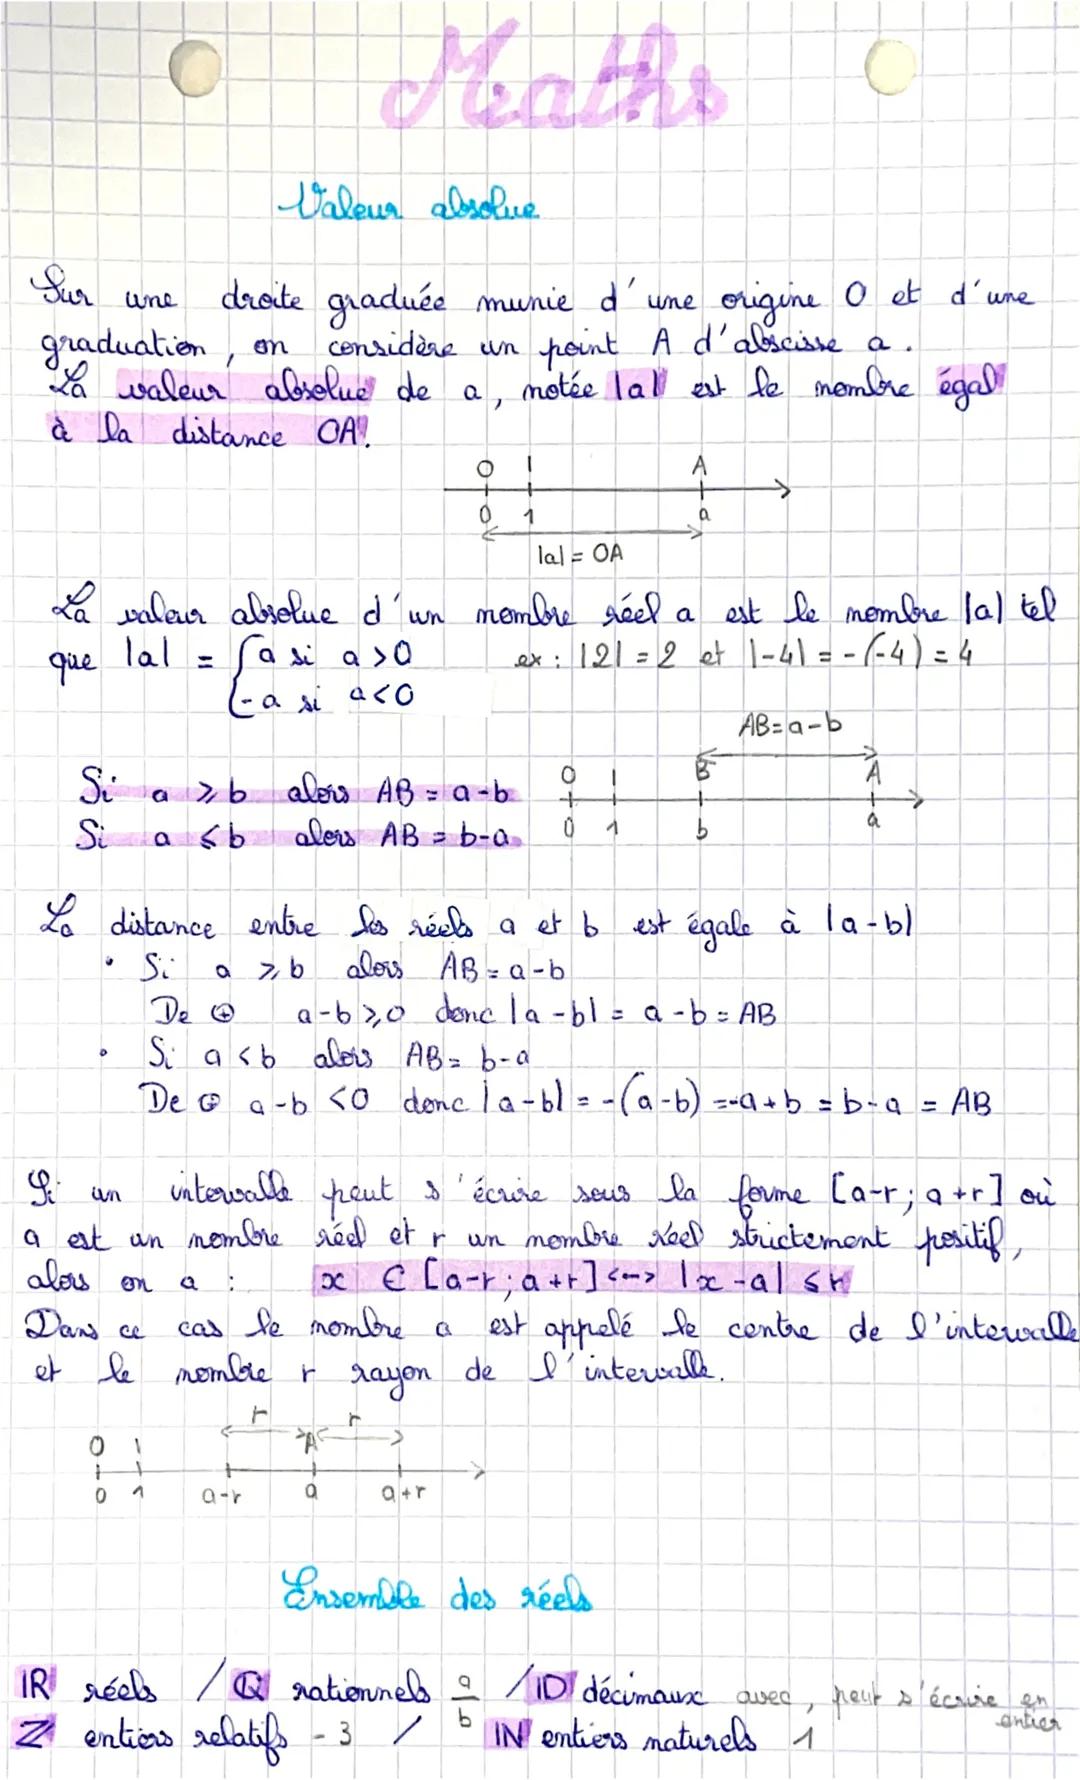 Maths
Valeur absolue
Sur une droite graduée munie d'une origine O et d'une
graduation, on considère un point A d'abscisse a.
La valeur absolue de a, notée |a| est le nombre égal
à la distance OA.
O I A
0 1 a
|a| = OA
La valeur absolue d'un nombre réel a est le nombre |a| tel
que |a| = { a si a > 0 ex : |2| = 2 et |-4| = -(-4) = 4
-a si a < 0
AB = a-b
Si a ⩾ b alors AB = a-b
O I B A
Si a ⩽ b alors AB = b-a
0 1 b a
La distance entre les réels a et b est égale à |a-b|
• Si a ⩾ b alors AB = a-b
De ⊕ a-b ⩾ 0 donc |a-b| = a-b = AB
• Si a < b alors AB = b-a
De ⊕ a-b < 0 donc |a-b| = -(a-b) = -a+b = b-a = AB
Si un intervalle peut s'écrire sous la forme [a-r ; a+r] où
a est un nombre réel et r un nombre réel strictement positif,
alors on a : x ∈ [a-r ; a+r] <--> |x-a| ⩽ r
Dans ce cas le nombre a est appelé le centre de l'intervalle
et le nombre r rayon de l'intervalle.
r r
O I A
0 1 a-r a a+r
Ensemble des réels
ℝ réels / ℚ rationnels a/b / 𝔻 décimaux avec , peut s'écrire en entier
ℤ entiers relatifs -3 / ℕ entiers naturels 1